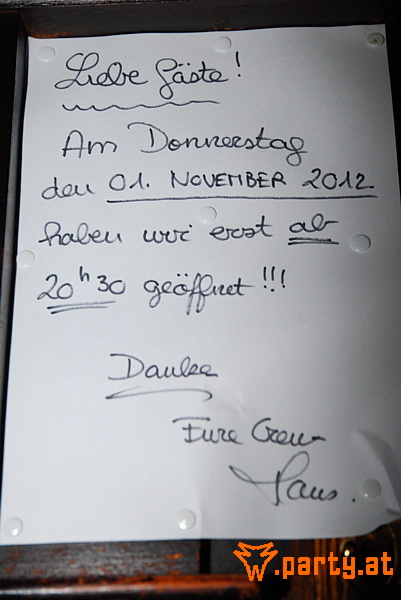 Liebe Gäste!
Am Donnerstag
den 01. NOVEMBER 2012
haben wir erst ab
20h30 geöffnet!!!
Danke
Eure Crew
Hans.
party.at